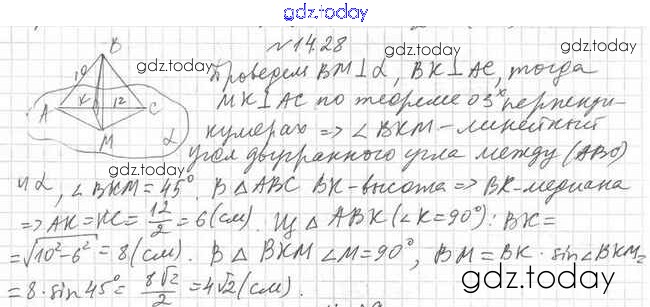 gdz.today
№14.28
gdz.today
B
gdz.today
Проведем BM⊥α, BK⊥AC, тогда
10
K
12
A
C
MK⊥AC по теореме о 3х перпенди-
M
α
кулярах => ∠BKM - линейный
угол двугранного угла между (ABC)
и α, ∠BKM = 45°. В △ABC BK-высота => BK-медиана
=> AK = KC = 12/2 = 6(см). Из △ABK (∠K=90°): BK =
= √10²-6² = 8(см). В △BKM ∠M=90°, BM = BK · sin∠BKM =
= 8·sin45° = 8√2/2 = 4√2(см).
gdz.today
gdz.today